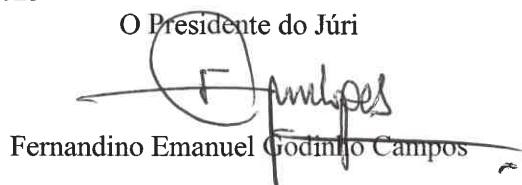 O Presidente do Júri
Fernandino Emanuel Godinho Campos